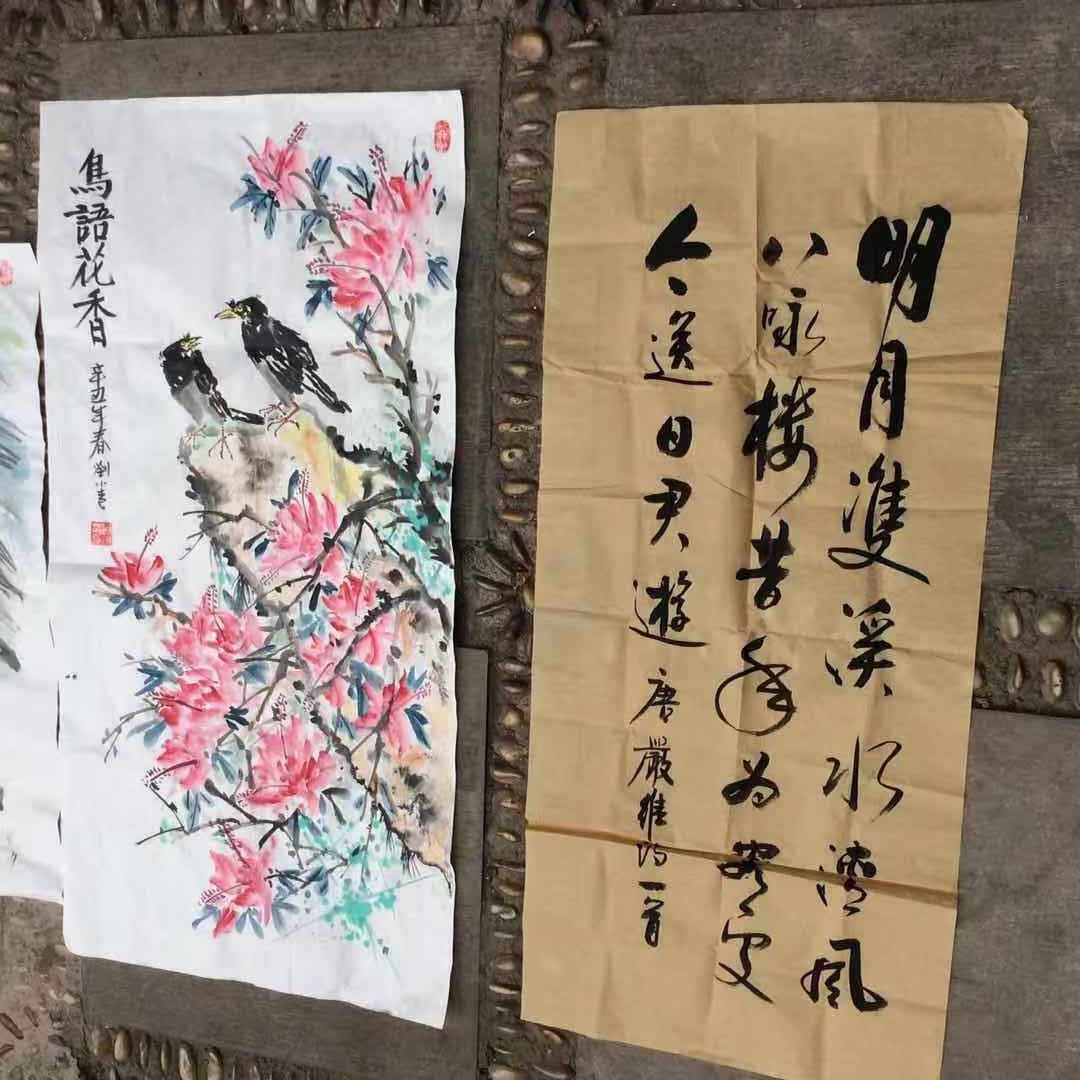 鳥語花香
辛丑年春劉小
明月隻溪水清風
八咏楼昔年为客处
今送日君遊唐嚴維詩一首